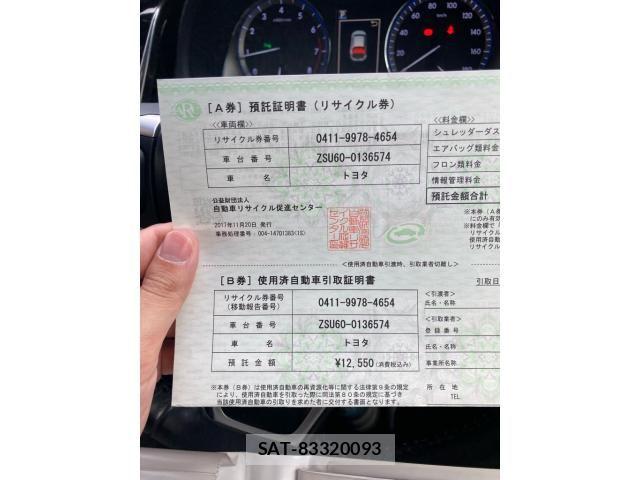 [A券] 預託証明書(リサイクル券)
<<車両欄>>
リサイクル券番号 0411-9978-4654
車台番号 ZSU60-0136574
車名 トヨタ
公益財団法人
自動車リサイクル促進センター
2017年11月20日 発行
業務処理番号:004-14701383(1S)
<<料金欄>>
シュレッダーダス
エアバッグ類料金
フロン類料金
情報管理料金
預託金額合計
<使用済自動車引渡時、引取業者切離し>
[B券] 使用済自動車引取証明書
引取日
リサイクル券番号
(移動報告番号) 0411-9978-4654
車台番号 ZSU60-0136574
車名 トヨタ
預託金額 ¥12,550(消費税込み)
<引渡者>
氏名・名称
<引取業者>
登録番号
氏名・名称
事業所名称
所在地
TEL
※本券(B券)は使用済自動車の再資源化等に関する法律第9条の規定
により、使用済自動車を引取った際に同法第80条の規定に基づき
当該使用済自動車の引取りを求めた者に交付する書面となります。
SAT-83320093